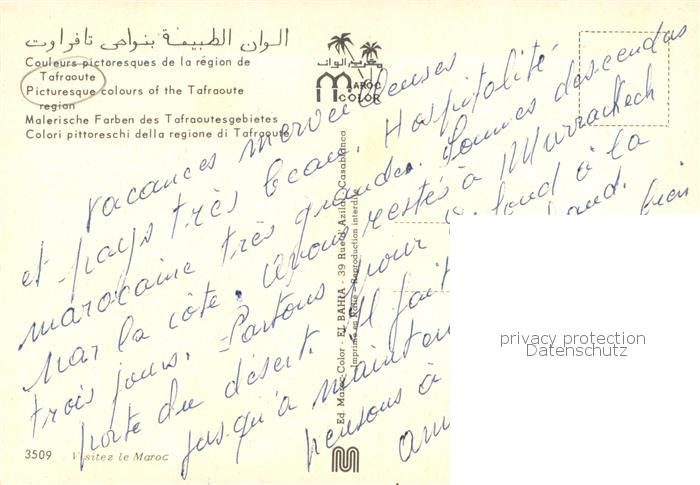 الوان الطبيعة بنواحي تافراوت
Couleurs pictoresques de la région de
Tafraoute
Picturesque colours of the Tafraoute
region
Malerische Farben des Tafraoutesgebietes
Colori pittoreschi della regione di Tafraoute
مغرب الوان
MAROC
COLOR
Vacances merveilleuses
et pays très beau. Hospitalité
marocaine très grande. Sommes descendus
par la côte. Avons restés à Marrackech
trois jours. Partons pour fond à la
porte du désert. Il fait chaud. bien
jusqu'à mainten
pensons à
am
Ed. Maroc Color - EL BAHIA - 39 Rue d'Azilal - Casablanca
Imprimé en Italie - Reproduction interdite
3509 Visitez le Maroc
privacy protection
Datenschutz